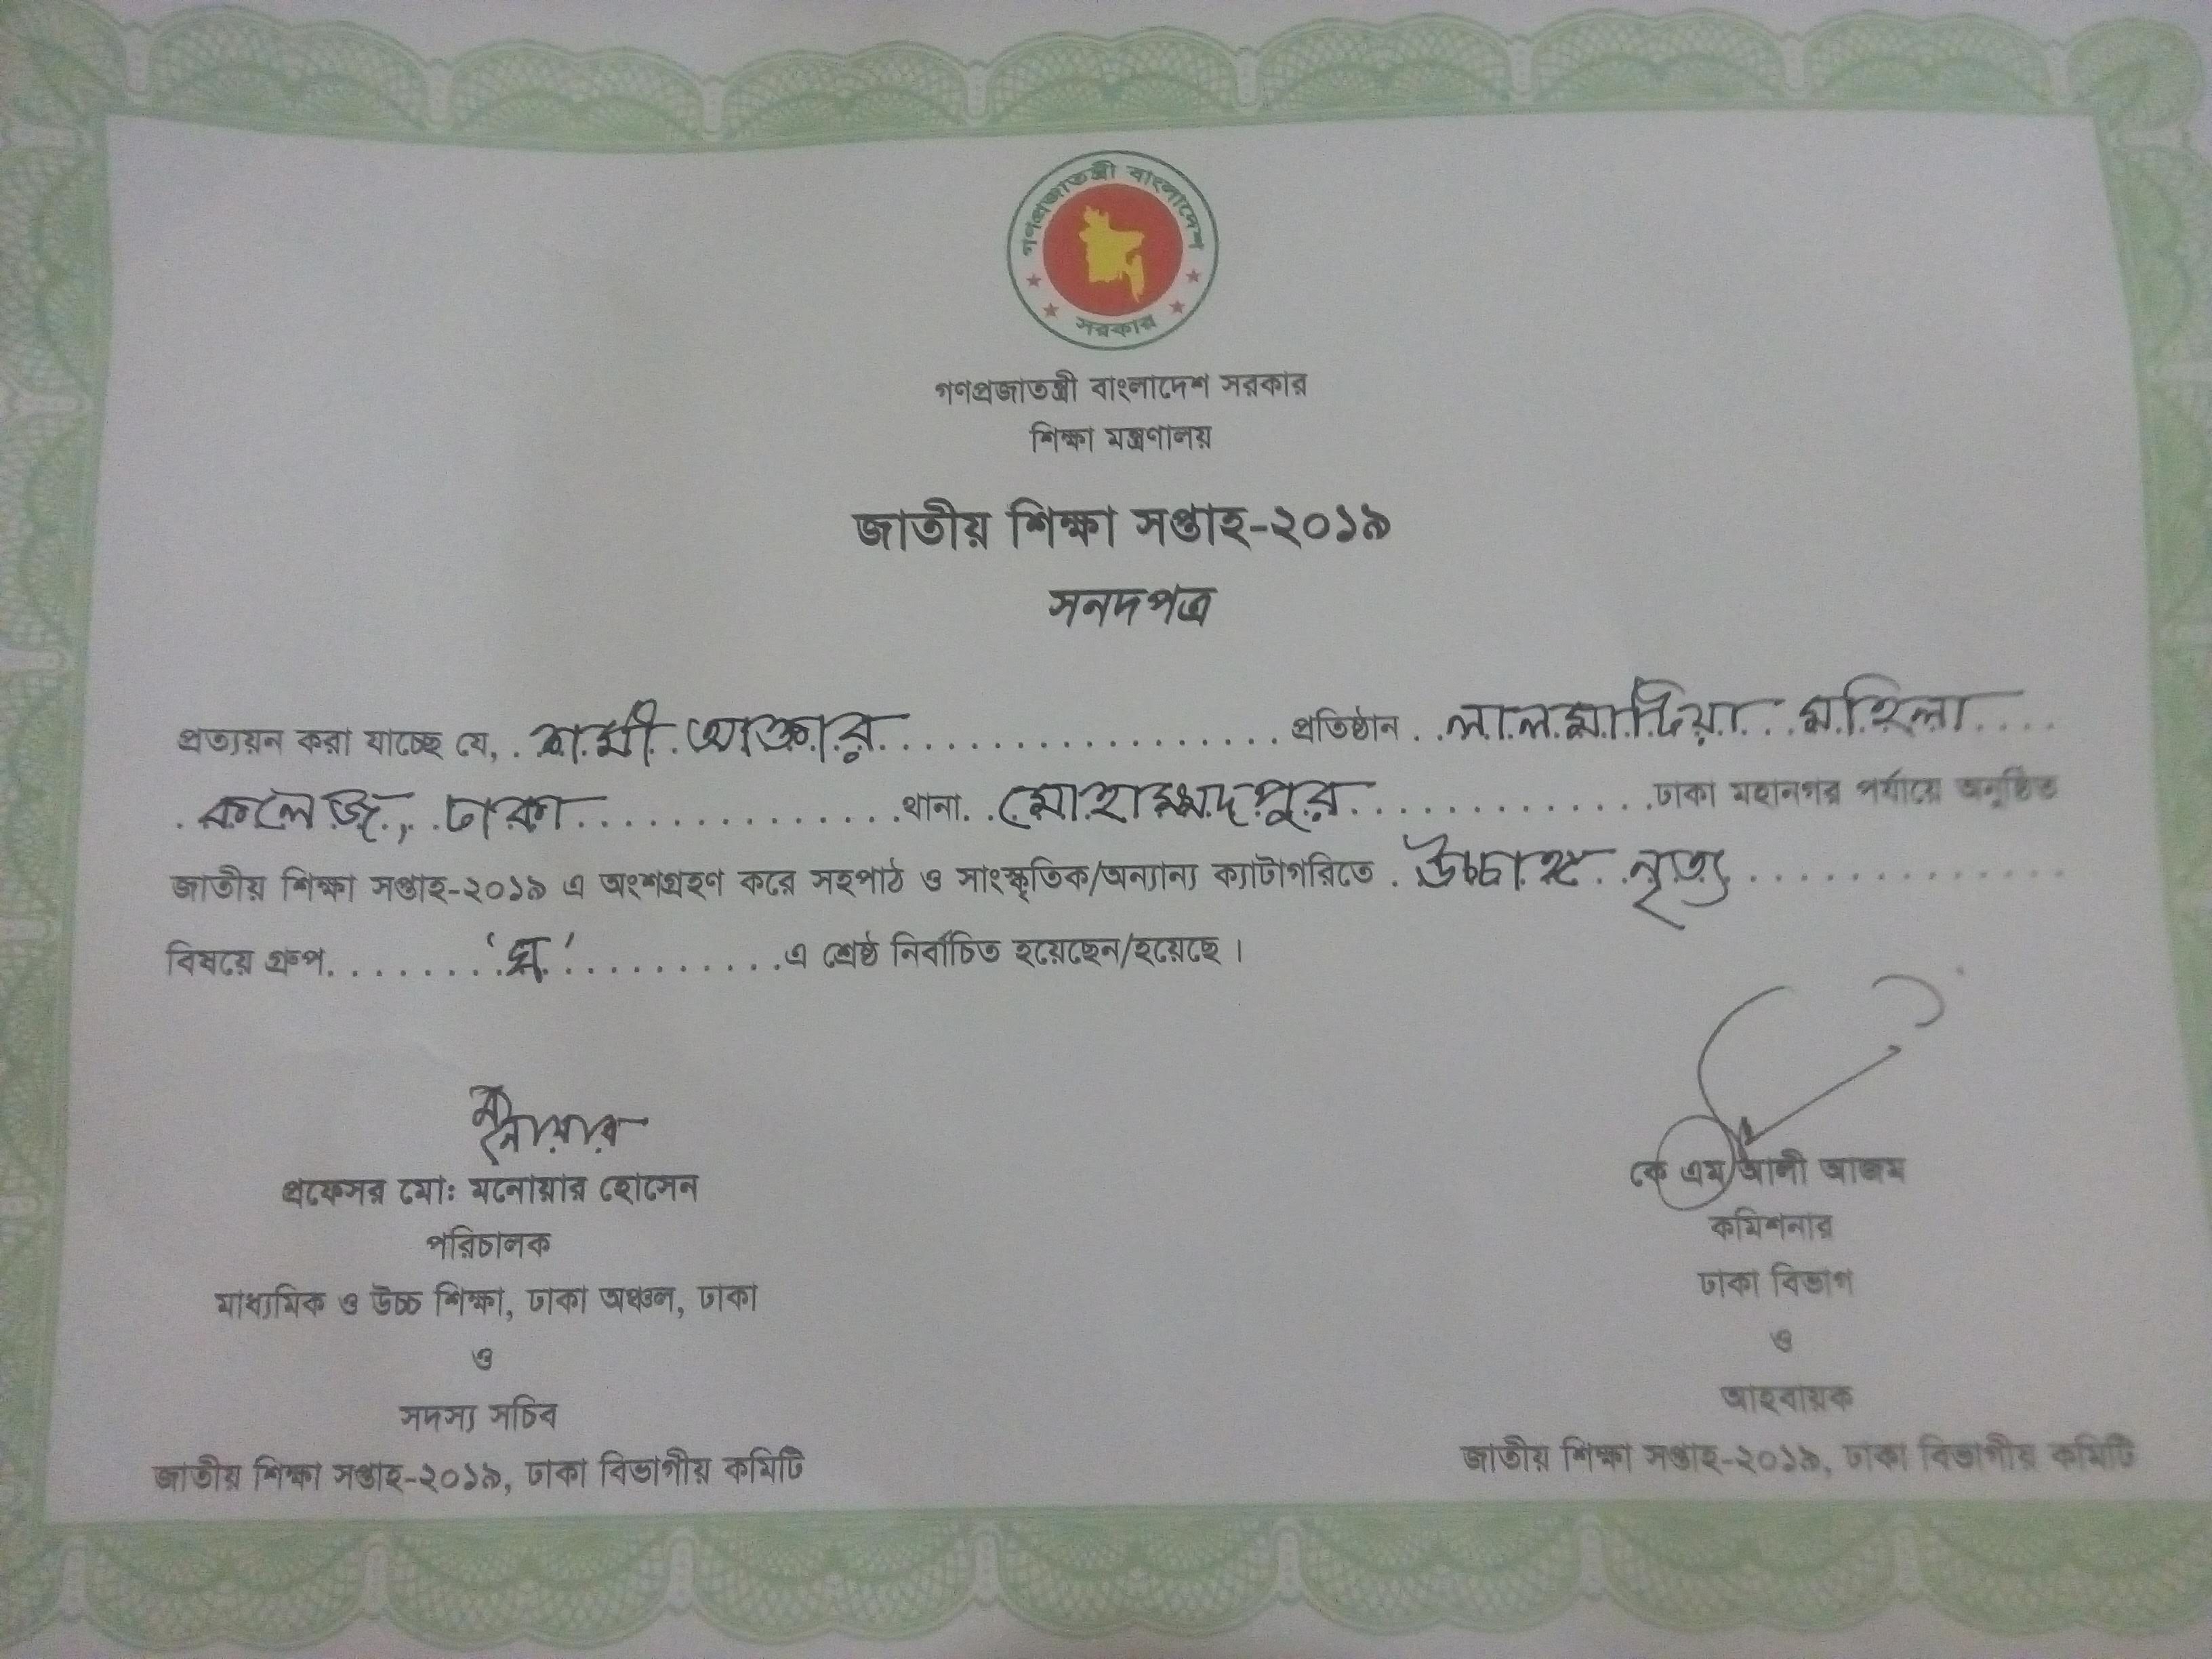 গণপ্রজাতন্ত্রী বাংলাদেশ
সরকার
গণপ্রজাতন্ত্রী বাংলাদেশ সরকার
শিক্ষা মন্ত্রণালয়
জাতীয় শিক্ষা সপ্তাহ-২০১৯
সনদপত্র
প্রত্যয়ন করা যাচ্ছে যে, শামী আক্তার প্রতিষ্ঠান লালমাটিয়া মহিলা
কলেজ, ঢাকা থানা মোহাম্মদপুর ঢাকা মহানগর পর্যায়ে অনুষ্ঠিত
জাতীয় শিক্ষা সপ্তাহ-২০১৯ এ অংশগ্রহণ করে সহপাঠ ও সাংস্কৃতিক/অন্যান্য ক্যাটাগরিতে উচ্চাঙ্গ নৃত্য
বিষয়ে গ্রুপ 'ঘ' এ শ্রেষ্ঠ নির্বাচিত হয়েছেন/হয়েছে।
মনোয়ার
প্রফেসর মো: মনোয়ার হোসেন
পরিচালক
মাধ্যমিক ও উচ্চ শিক্ষা, ঢাকা অঞ্চল, ঢাকা
ও
সদস্য সচিব
জাতীয় শিক্ষা সপ্তাহ-২০১৯, ঢাকা বিভাগীয় কমিটি
কে এম আলী আজম
কমিশনার
ঢাকা বিভাগ
ও
আহবায়ক
জাতীয় শিক্ষা সপ্তাহ-২০১৯, ঢাকা বিভাগীয় কমিটি